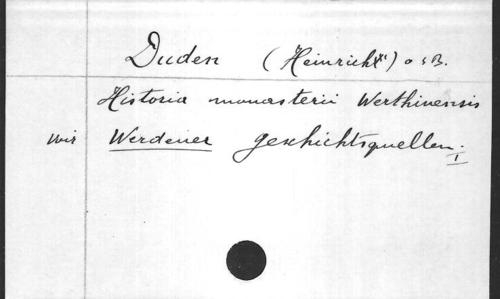 Duden (Heinrich) O.S.B.
Historia monasterii Werthinensis
voir Werdener Geschichtsquellen. I